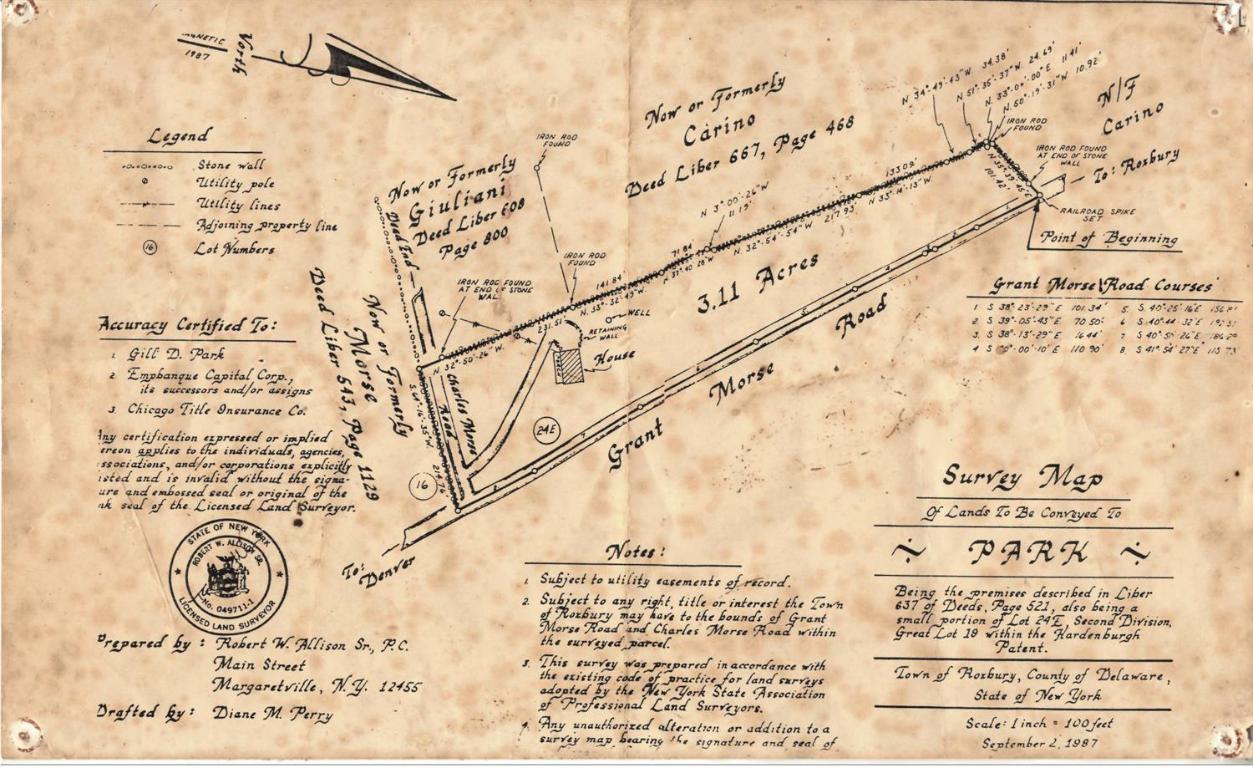 MAGNETIC
1987
North
Legend
Stone wall
Utility pole
Utility lines
Adjoining property line
16 Lot Numbers
Accuracy Certified To:
1. Gill D. Park
2. Emphanque Capital Corp.,
its successors and/or assigns
3. Chicago Title Insurance Co.
Any certification expressed or implied
hereon applies to the individuals, agencies,
associations, and/or corporations explicitly
listed and is invalid without the signa-
ture and embossed seal or original of the
ink seal of the Licensed Land Surveyor.
STATE OF NEW YORK
ROBERT W. ALLISON SR.
No. 049711-1
LICENSED LAND SURVEYOR
Prepared by: Robert W. Allison Sr., P.C.
Main Street
Margaretville, N.Y. 12455
Drafted by: Diane M. Perry
Now or Formerly
Giuliani
Deed Liber 608
Page 800
Now or Formerly
Morse
Deed Liber 543, Page 1129
Dead End
IRON ROD
FOUND
IRON ROD FOUND
AT END OF STONE
WALL
IRON ROD
FOUND
Now or Formerly
Carino
Deed Liber 667, Page 468
N 34°-49'-43" W 34.38'
N 51°-35'-37" W 24.69'
N 33°-01'-00" E 11.41'
N 50°-19'-31" W 10.92'
IRON ROD
FOUND
N/F
Carino
IRON ROD FOUND
AT END OF STONE
WALL
To: Roxbury
RAILROAD SPIKE
SET
Point of Beginning
101.42'
133.09'
N 35°-14'-13" W
217.93'
N 32°-54'-54" W
N 3°-00'-26" W
11.19'
71.84'
141.84'
231.51'
N 32°-50'-26" W
WELL
RETAINING
WALL
House
3.11 Acres
Charles Morse
Road
S 64°-16'-35" W
24E
16
Grant Morse Road
To:
Denver
Grant Morse Road Courses
1 S 38°-23'-29" E 101.34'
2. S 39°-05'-43" E 70.50'
3. S 38°-13'-29" E 16.44'
4 110.90'
5. S 40°-25'-16" E
6 S 40°-44'-32" E
7
8. S 41°-54'-27" E
Notes:
1. Subject to utility easements of record.
2. Subject to any right, title or interest the Town
of Roxbury may have to the bounds of Grant
Morse Road and Charles Morse Road within
the surveyed parcel.
3. This survey was prepared in accordance with
the existing code of practice for land surveys
adopted by the New York State Association
of Professional Land Surveyors.
4. Any unauthorized alteration or addition to a
survey map bearing the signature and seal of
Survey Map
Of Lands To Be Conveyed To
PARK
Being the premises described in Liber
637 of Deeds, Page 521, also being a
small portion of Lot 24E, Second Division,
Great Lot 19 within the Hardenburgh
Patent.
Town of Roxbury, County of Delaware,
State of New York
Scale: 1 inch = 100 feet
September 2, 1987